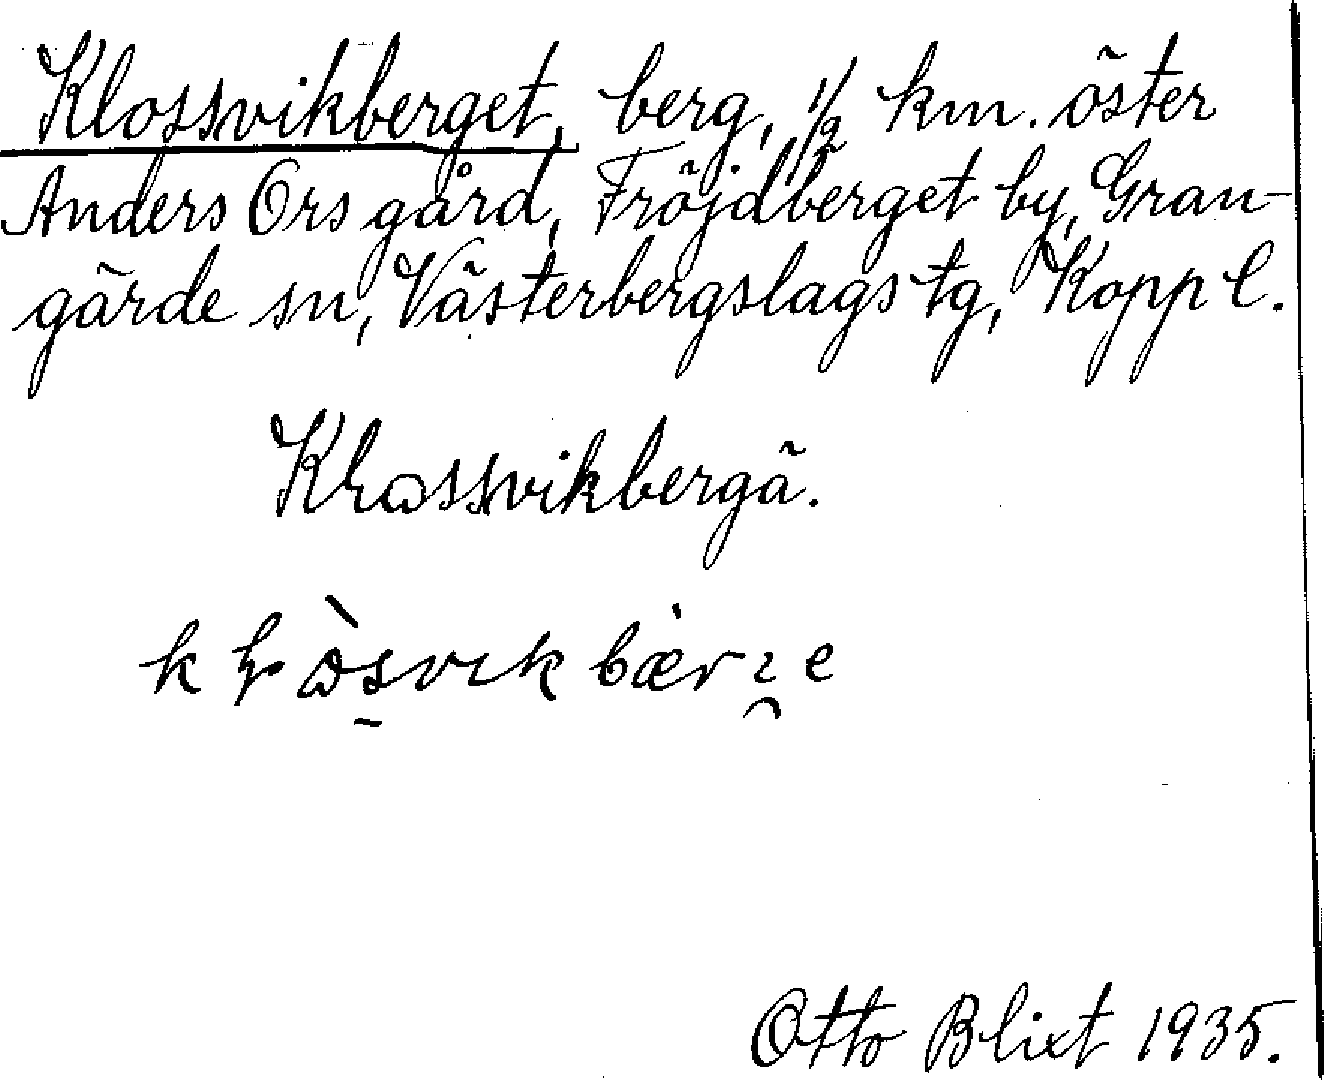 Klossvikberget, berg, 1/2 km. öster
Anders Ors gård, Fröjdberget by, Gran-
gärde sn, Västerbergslags tg, Kopp l.
Klɷssvikbergä.
k ɷ̀svık bær e
Otto Blixt 1935.